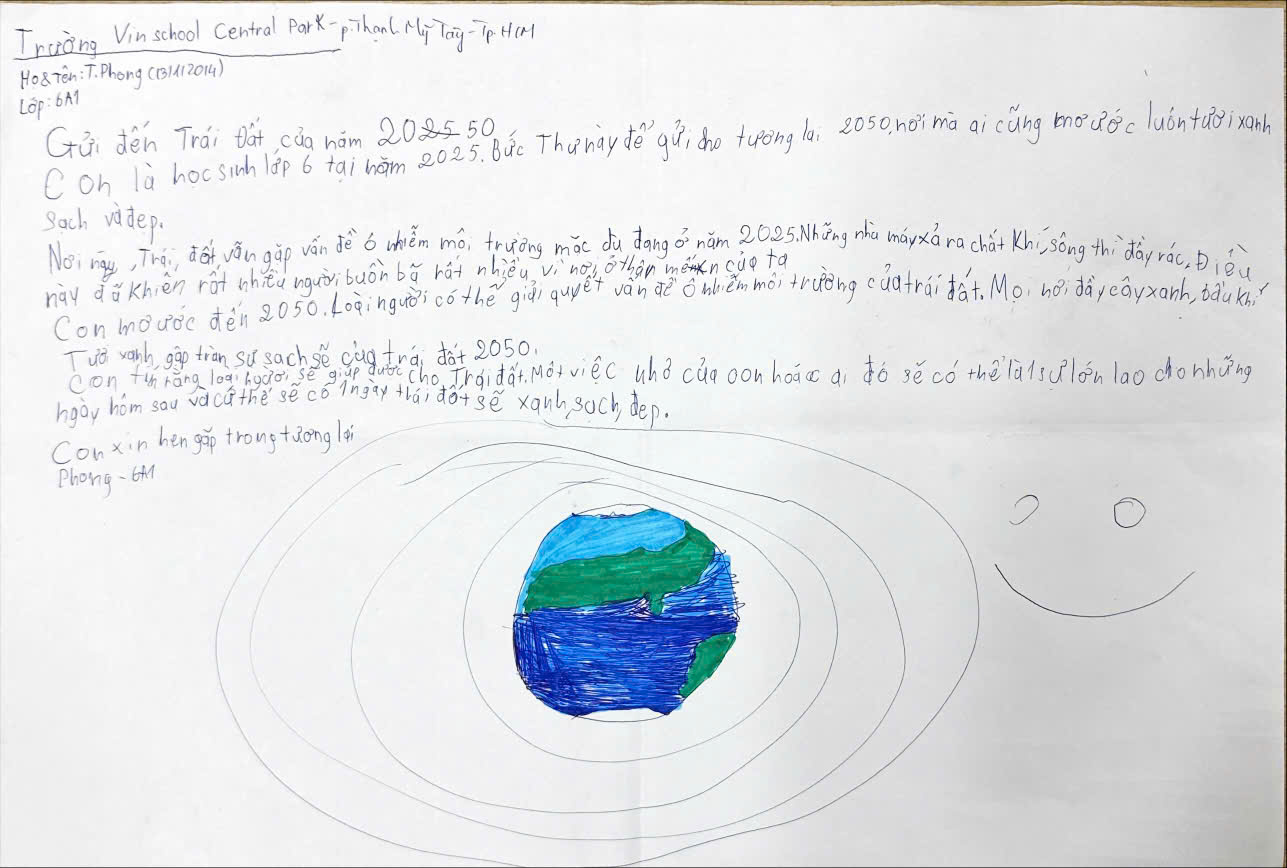 Trường Vinschool Central Park - p.Thạnh Mỹ Tây - Tp.HCM
Họ & Tên: T.Phong (13/1/2014)
Lớp: 6A1
Gửi đến Trái Đất của năm 2025 50
Con là học sinh lớp 6 tại năm 2025. Bức Thư này để gửi cho tương lai 2050, nơi mà ai cũng mơ ước luôn tươi xanh
sạch và đẹp.
Nơi này, Trái đất vẫn gặp vấn đề ô nhiễm môi trường mặc dù đang ở năm 2025. Những nhà máy xả ra chất khí, sông thì đầy rác. Điều
này đã khiến rất nhiều người buồn bã rất nhiều vì nơi ở thân mến của ta
Con mơ ước đến 2050. Loài người có thể giải quyết vấn đề ô nhiễm môi trường của trái đất. Mọi nơi đầy cây xanh, bầu khí
Tươi xanh, gập tràn sự sạch sẽ của trái đất 2050.
Con tin rằng loài người sẽ giúp được cho Trái đất. Một việc nhỏ của con hoặc ai đó sẽ có thể là 1 sự lớn lao cho những
ngày hôm sau và cứ thế sẽ có 1 ngày trái đất sẽ xanh, sạch, đẹp.
Con xin hẹn gặp trong tương lai
Phong - 6A1